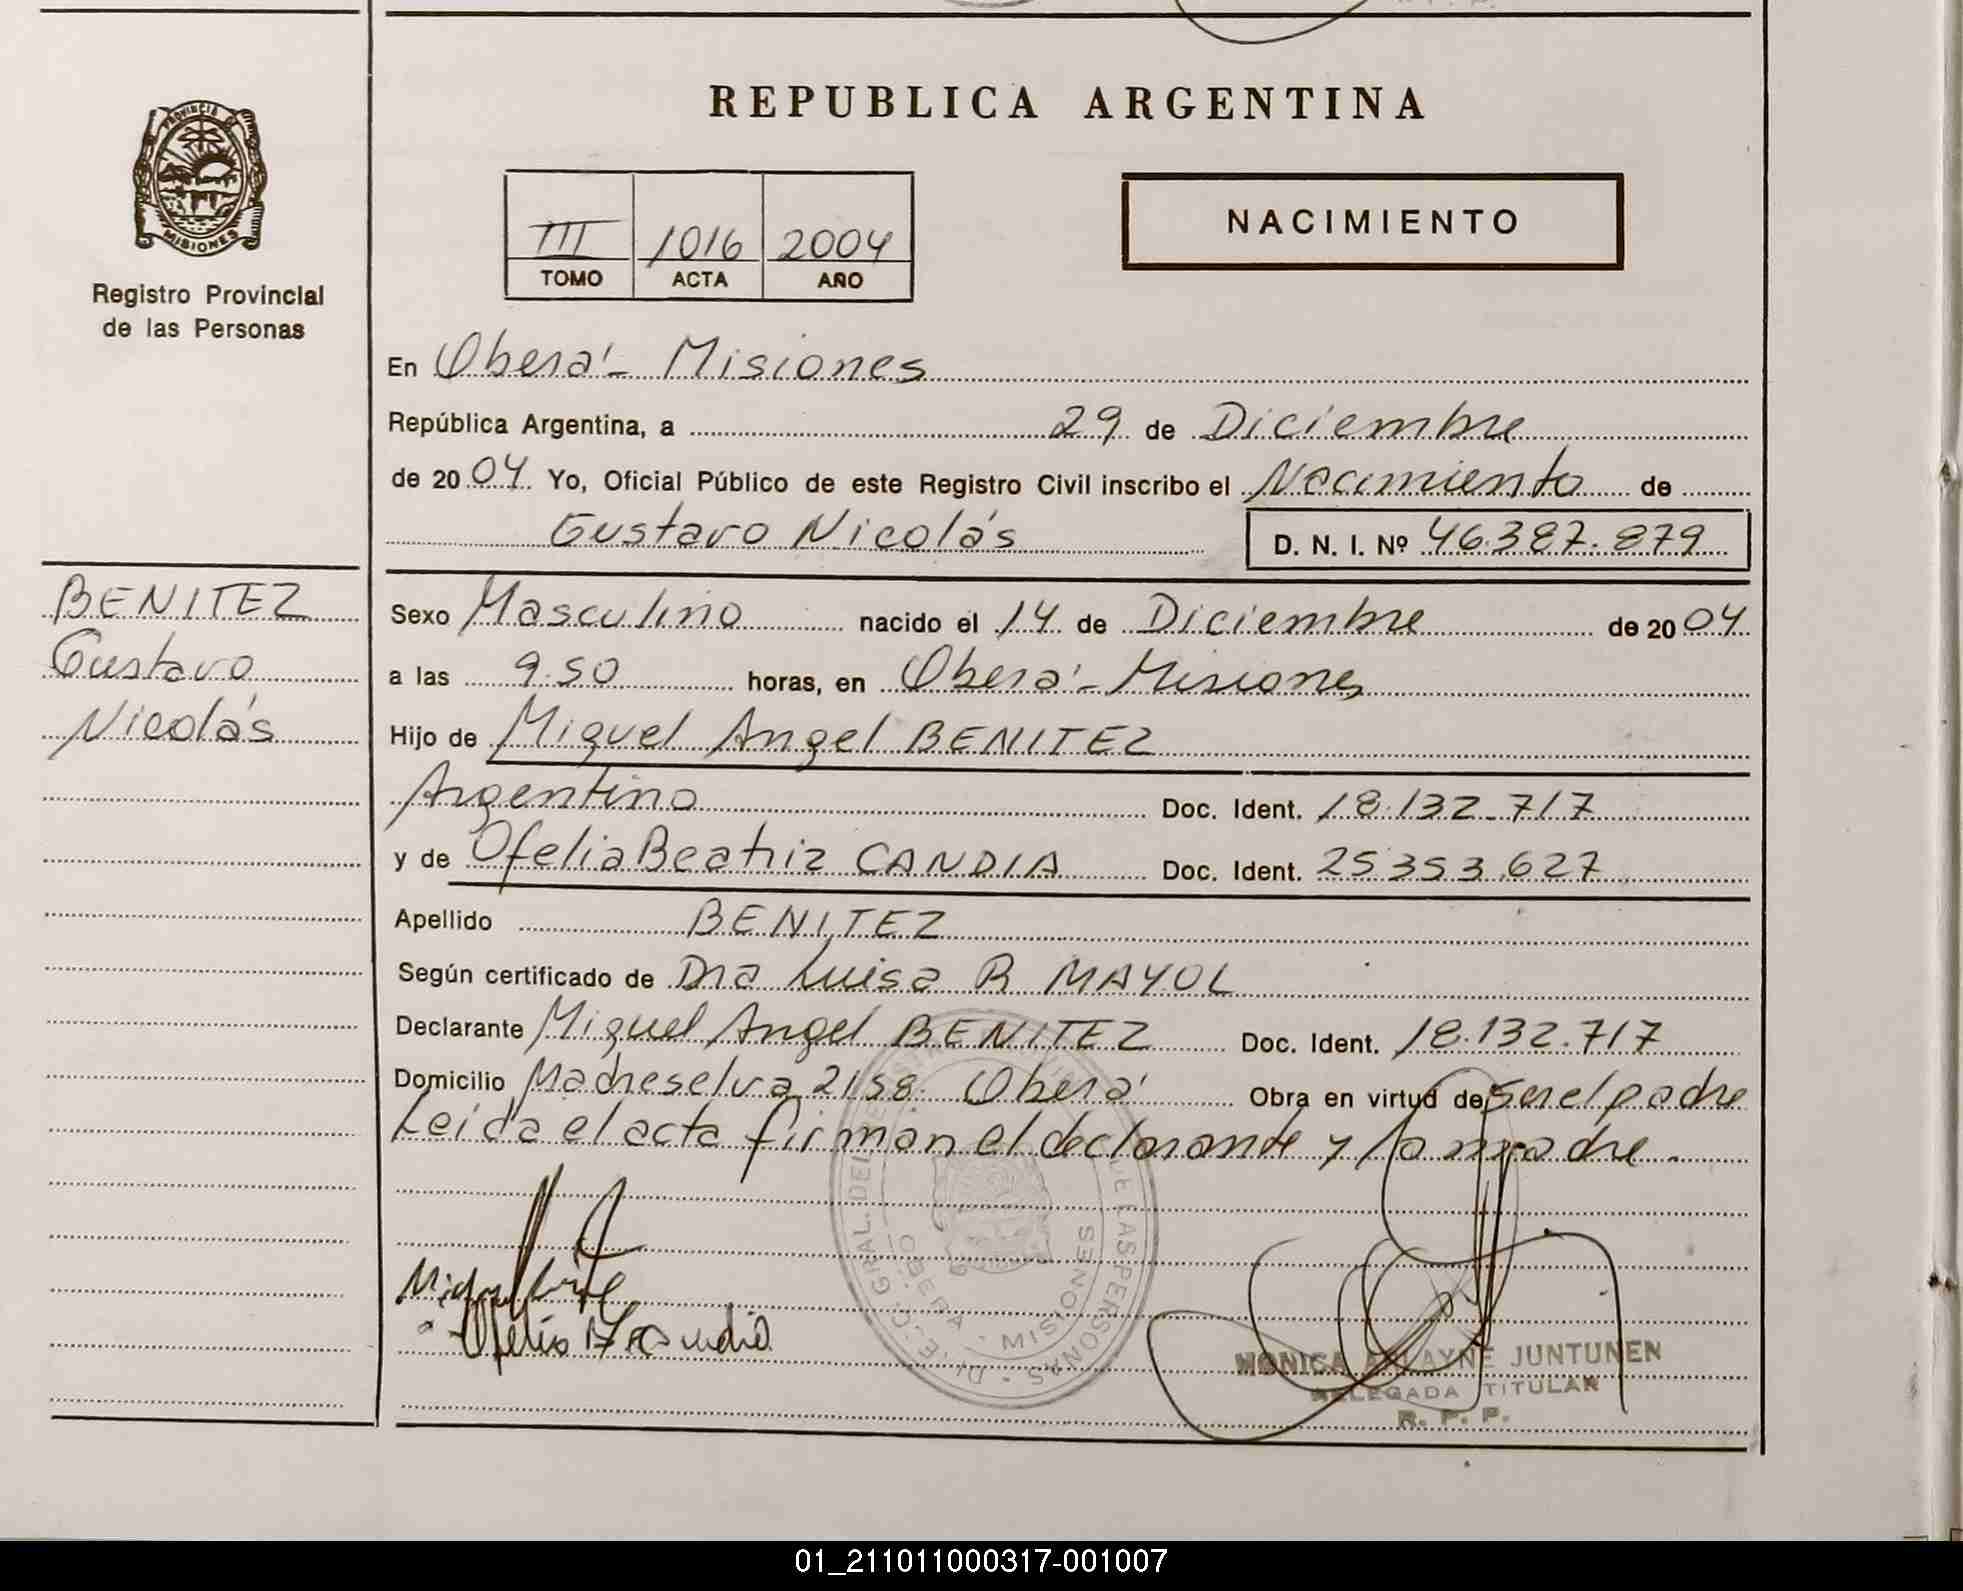 REPUBLICA ARGENTINA
PROVINCIA DE
MISIONES
Registro Provincial
de las Personas
III 1016 2004
TOMO ACTA AÑO
NACIMIENTO
En Oberá - Misiones
República Argentina, a 29 de Diciembre
de 2004 Yo, Oficial Público de este Registro Civil inscribo el Nacimiento de
Gustavo Nicolás D. N. I. Nº 46.387.879
BENITEZ
Gustavo
Nicolás
Sexo Masculino nacido el 14 de Diciembre de 2004
a las 9.50 horas, en Oberá - Misiones
Hijo de Miguel Angel BENITEZ
Argentino Doc. Ident. 18.132.717
y de Ofelia Beatriz CANDIA Doc. Ident. 25353.627
Apellido BENITEZ
Según certificado de Dra Luisa R MAYOL
Declarante Miguel Angel BENITEZ Doc. Ident. 18.132.717
Domicilio Madreselva 2158. Oberá Obra en virtud de ser el padre
Leida el acta firman el declarante y la madre.
DI.E.C. GRAL. DEL LAS PERSONAS
OBERA - MISIONES
MONICA JUNTUNEN
DELEGADA TITULAR
R. P. P.
01_211011000317-001007